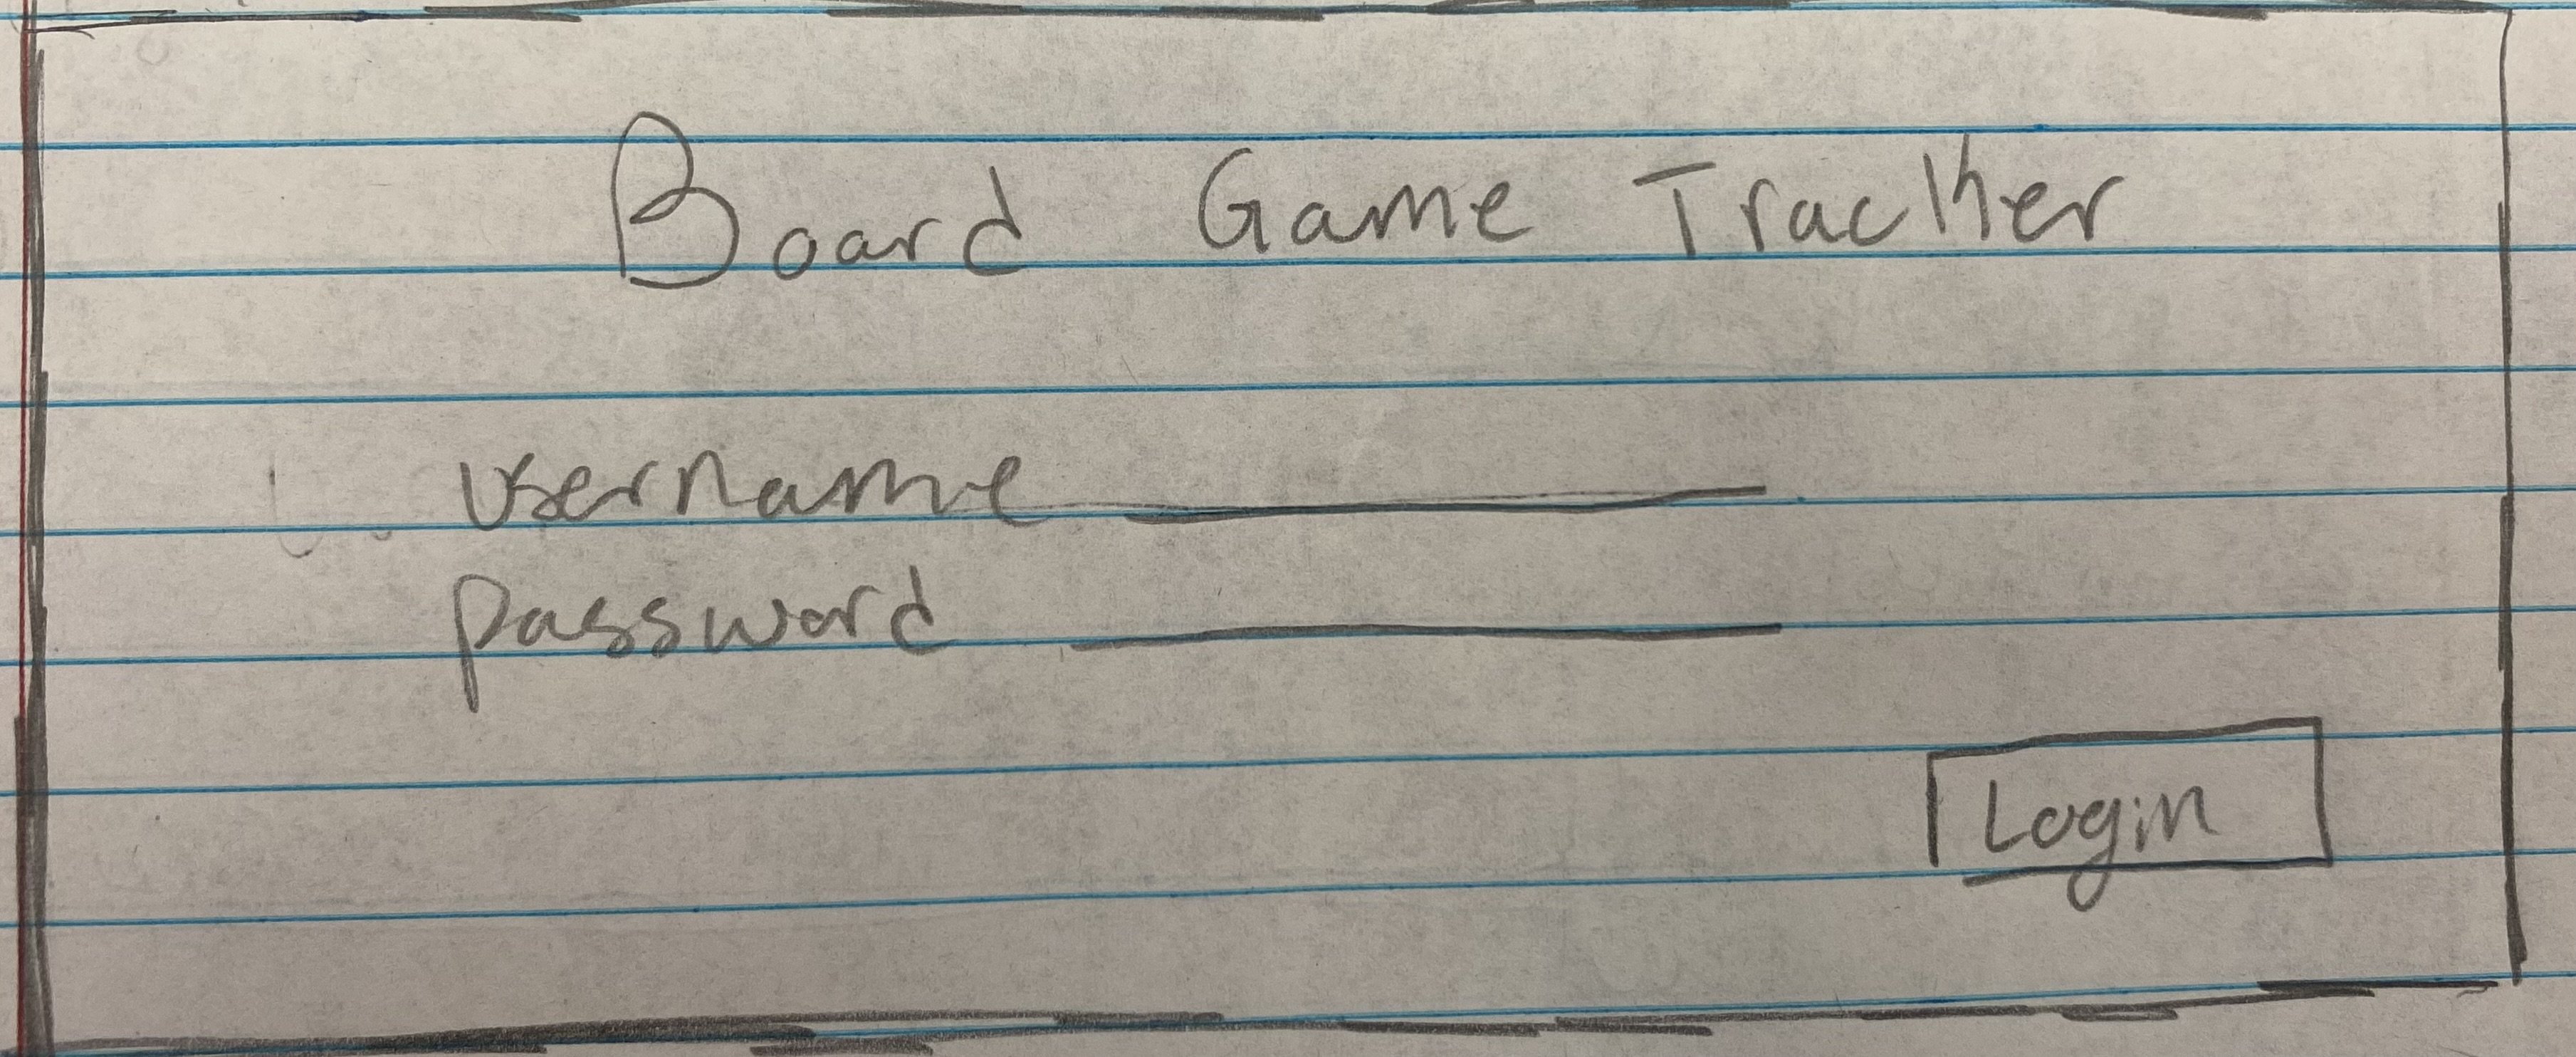 Board Game Tracker
username
password
Login